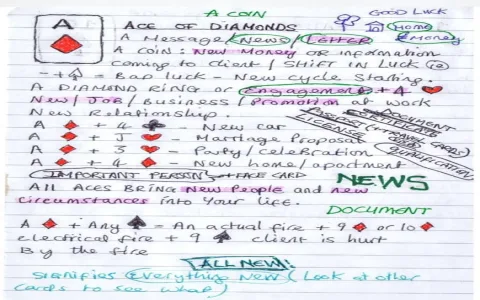 A COIN
GOOD LUCK
A
ACE OF DIAMONDS
A Message / News / LETTER
Home
Money
A COIN: New Money or information
coming to client / SHIFT IN LUCK
- + A♠ = Bad luck - New cycle Starting.
A DIAMOND RING or Engagement + 4 ♥
New / Job / Business / Promotion at work
New Relationship.
DOCUMENT
CERTIFICATE
LICENSE
QUALIFICATION
A ♦ + 4 ♣ - New car
A ♦ + J ♦ - Marriage Proposal
A ♦ + 3 ♥ - Party/celebration
A ♦ + 4 ♦ - New home/apartment
IMPORTANT PERSON + FACE CARD
NEWS
All Aces BRING New People and new
circumstances into Your life.
DOCUMENT
A ♦ + Any ♠ = An actual fire + 9 ♦ or 10 ♦
electrical fire + 9 ♠ client is hurt
By the fire
ALL NEW!
Signifies Everything New (Look at other
cards to see what)